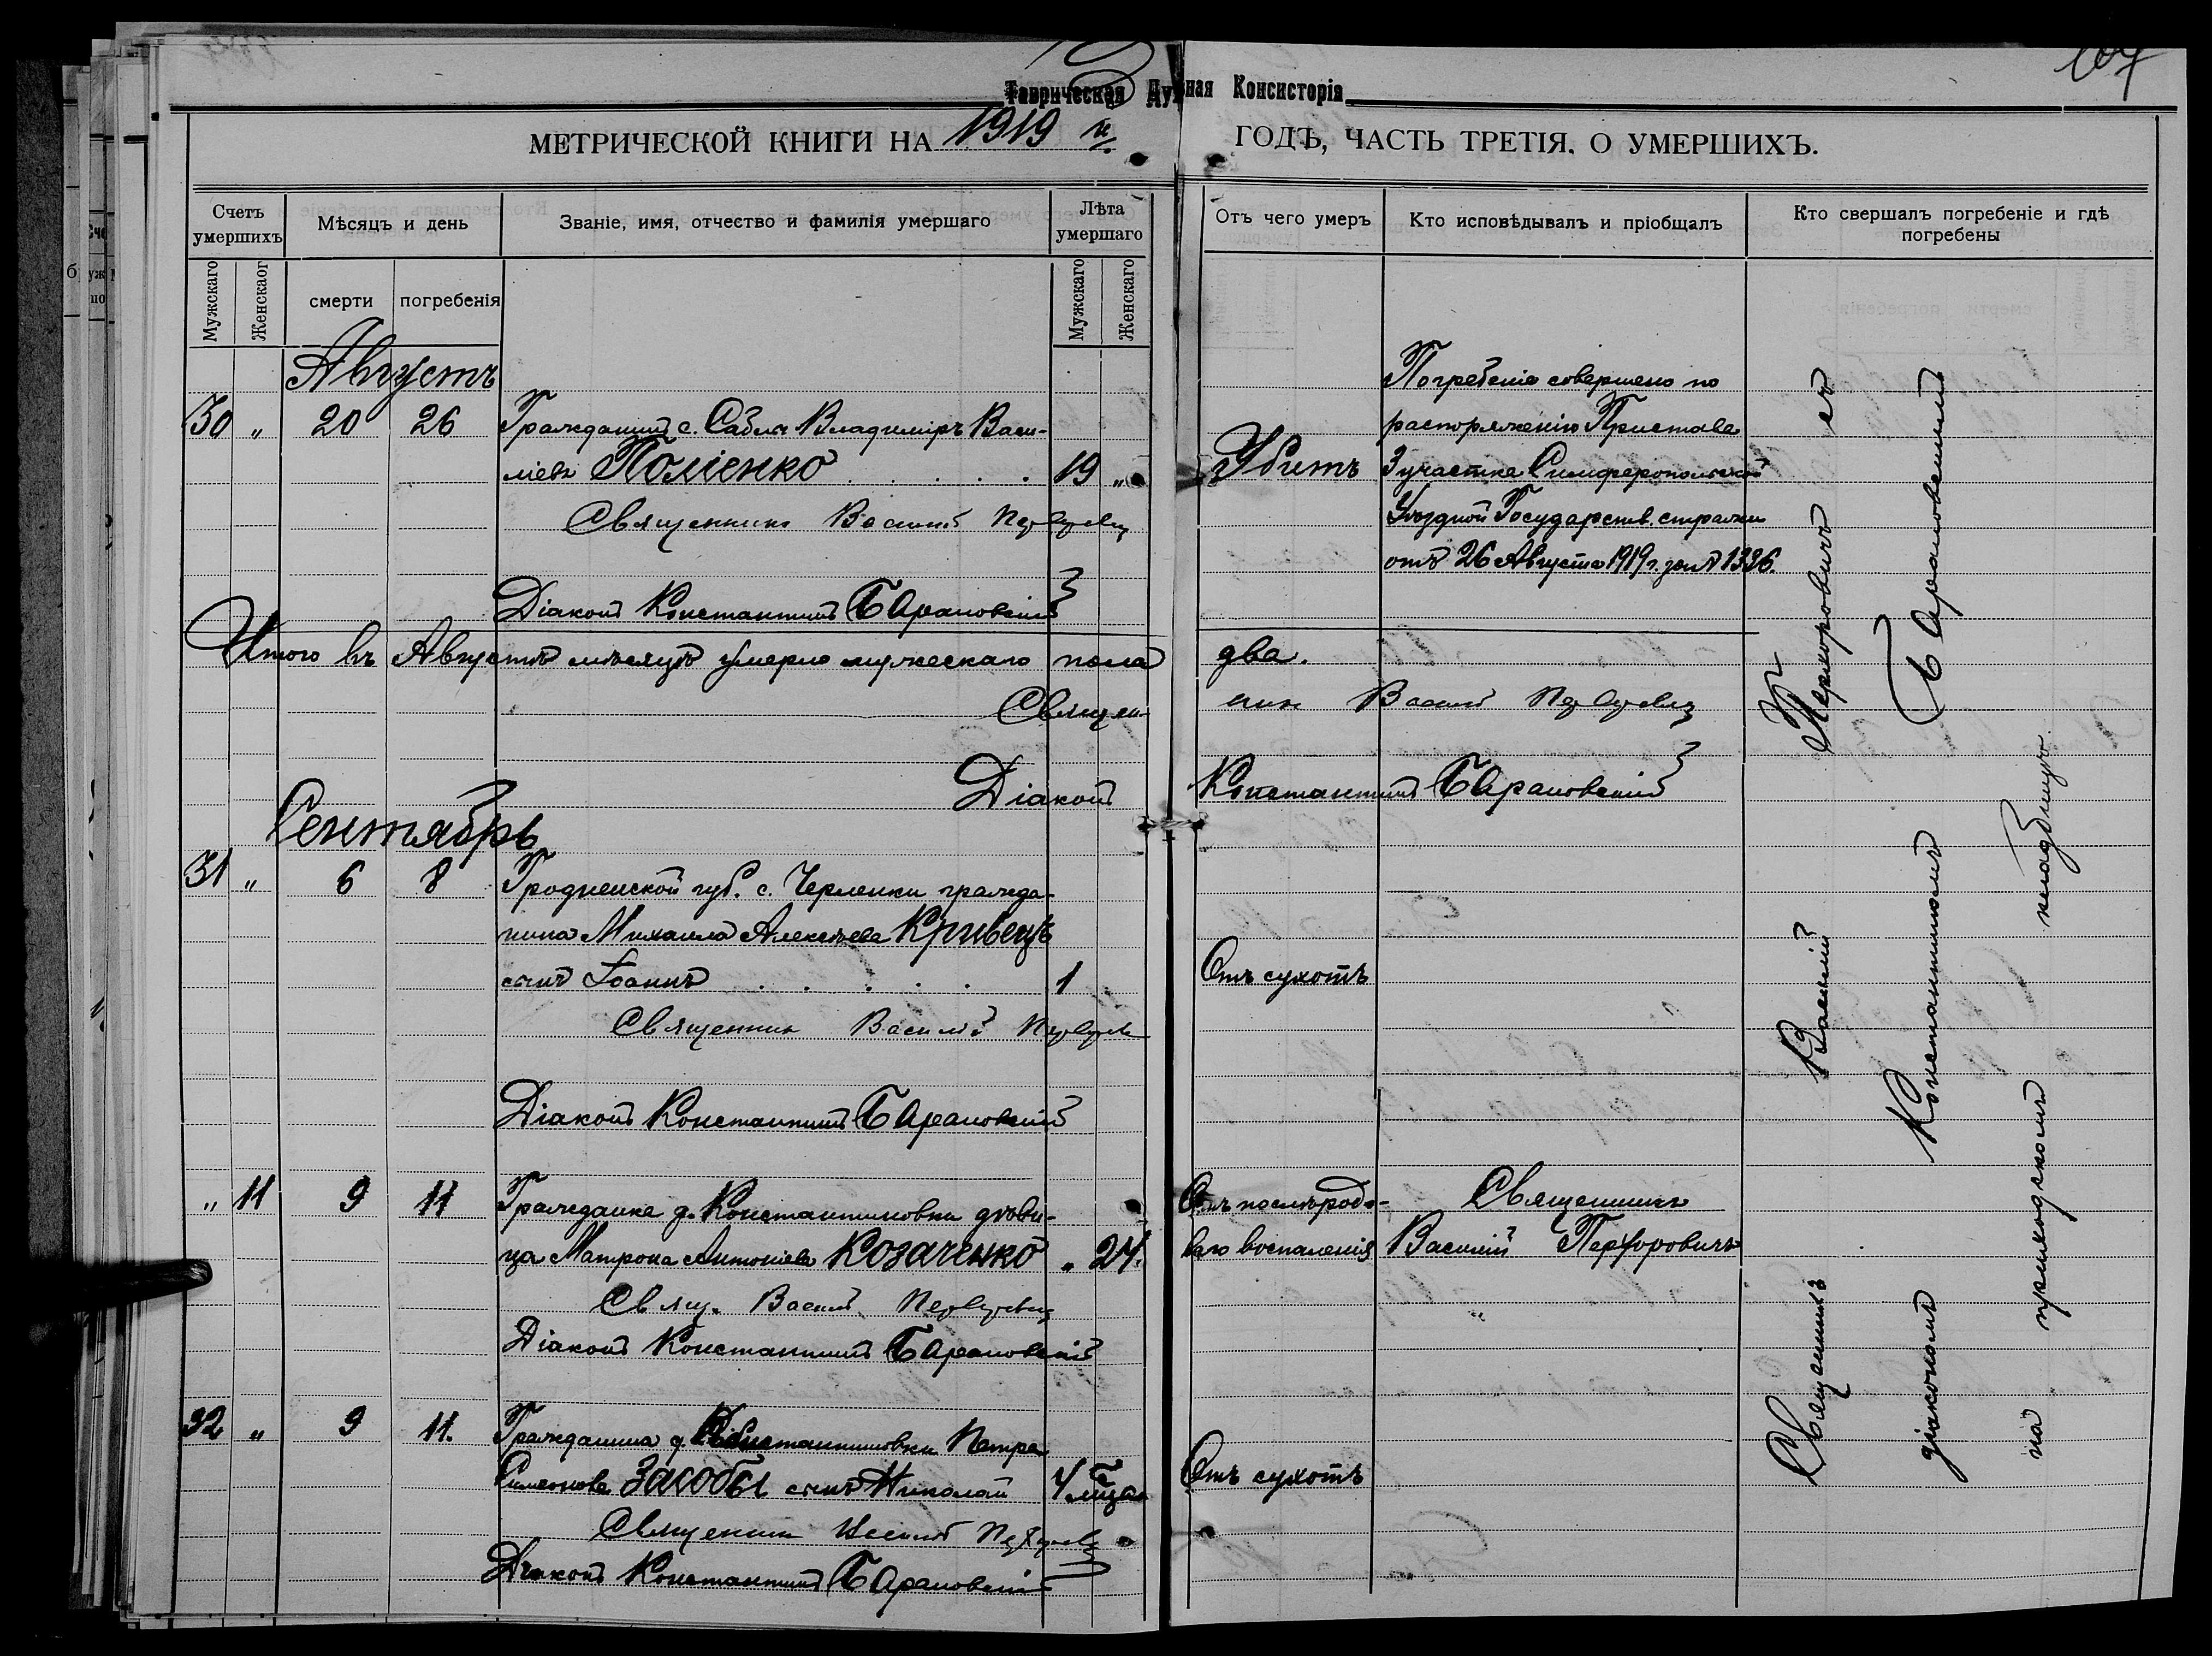 107
Таврическая Духовная Консисторія
МЕТРИЧЕСКОЙ КНИГИ НА 1919 й ГОДЪ, ЧАСТЬ ТРЕТІЯ, О УМЕРШИХЪ.
Счетъ умершихъ
Мѣсяцъ и день
Званіе, имя, отчество и фамилія умершаго
Лѣта умершаго
Отъ чего умеръ
Кто исповѣдывалъ и пріобщалъ
Кто свершалъ погребеніе и гдѣ погребены
Мужскаго
Женскаго
смерти
погребенія
Мужскаго
Женскаго
Августъ
30 " 20 26 Гражданинъ с. Саблы Владиміръ Васи-
ліевъ Поліенко 19 " Убитъ
Погребеніе совершено по
распоряженію Пристава
3 участка Симферопольской
Уѣздной Государств. стражи
отъ 26 Августа 1919 г. за № 1326.
Священникъ Василій
Діаконъ Константинъ Барановскій
Итого въ Августѣ мѣсяцѣ умерло мужескаго пола два.
Священникъ Василій
Діаконъ Константинъ Барановскій
Сентябрь
31 " 6 8 Гродненской губ. с. Черленки гражда-
нина Михаила Алексѣева Кривецъ
сынъ Іоаннъ 1 Отъ сухотъ
Священникъ Василій
Діаконъ Константинъ Барановскій
" 11 9 11 Гражданка д. Константиновки дѣви-
ца Матрона Антоніева Козаченко " 24.
Отъ послѣродо-
ваго воспаленія
Священникъ
Василій Перхоровичъ
Свящ. Василій
Діаконъ Константинъ Барановскій
32 " 9 11. Гражданина д. Константиновки Петра
Симеонова Засобы сынъ Николай 4 мѣсяца Отъ сухотъ
Священникъ Василій
Діаконъ Константинъ Барановскій
Священникъ Василій Перхоровичъ съ
діакономъ Константиномъ Барановскимъ
на приходскомъ кладбищѣ.